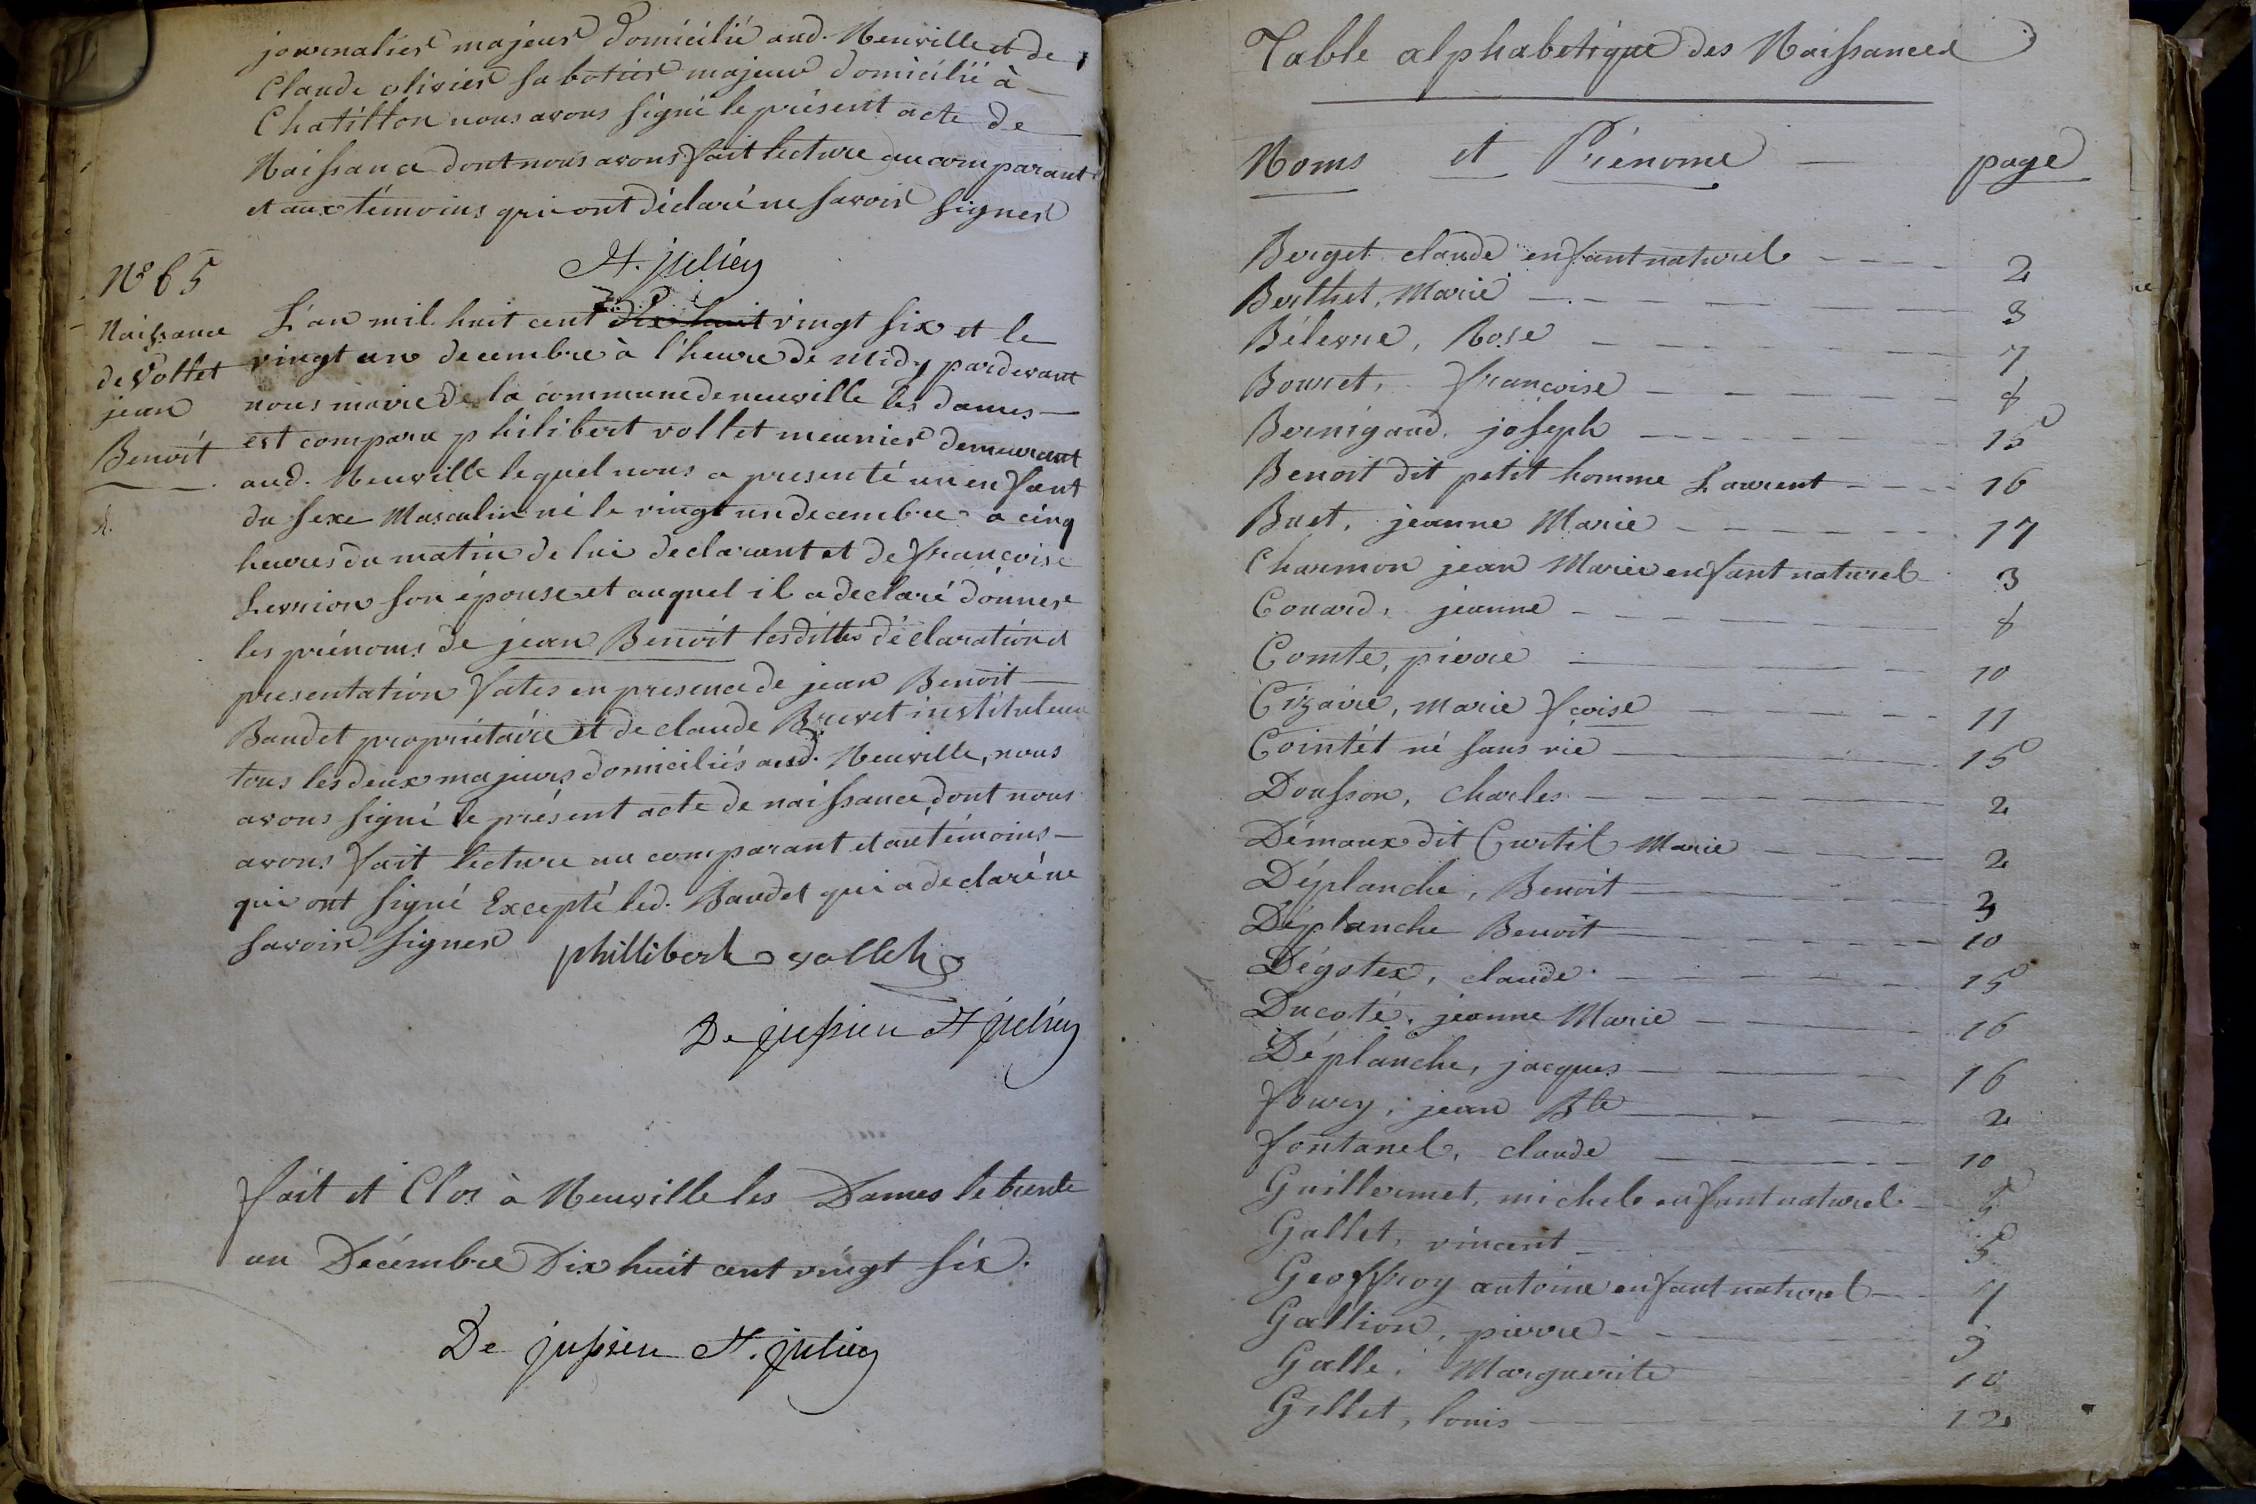 journalier majeur domicilié aud. Neuville et de
Claude olivier sabotier majeur domicilié à
Chatillon nous avons signé le présent acte de
Naissance dont nous avons fait lecture au comparant
et aux témoins qui ont déclaré ne savoir signer
St. julien
N° 65
Naissance
de Vollet
jean
Benoit
L'an mil huit cent dix huit vingt six et le
vingt un decembre à l'heure de midy pardevant
nous maire de la commune de neuville les dames
est comparu philibert vollet meunier demeurant
aud. Neuville lequel nous a presenté un enfant
du sexe Masculin né le vingt un decembre a cinq
heures du matin de lui declarant et de françoise
son épouse et auquel il a declaré donner
les prénoms de jean Benoit lesdittes déclaration et
presentation fates en presence de jean Benoit
Baudet propriétaire et de claude Brevet instituteur
tous les deux majeurs domiciliés aud. Neuville, nous
avons signé le présent acte de naissance dont nous
avons fait lecture au comparant et au témoins
qui ont signé Excepté led. Baudet qui a declaré ne
savoir signer
phillibert vollet
De jussieu St julien
fait et Clos à Neuville les Dames le trente
un Décembre Dix huit cent vingt six.
De jussieu St. julien
Table alphabetique des Naissances
Noms et Prénoms page
Berget claude enfant naturel 2
Berthet, Marie 3
Rose 7
Bourret, françoise 8
Bernigaud, joseph 15
Benoit dit petit homme Laurent 16
Buet, jeanne Marie 17
Charmon jean Marie enfant naturel 3
Couard, jeanne 8
Comte, pierre 10
Cizaire, marie fçoise 11
Cointét né sans vie 15
Dousson, charles 2
Démaux dit Curtil Marie 2
Déplanche, Benoit 3
Déplanche Benoit 10
Dégotex, claude 15
Ducoté, jeanne Marie 16
Déplanche, jacques 16
foury, jean Bte 2
fontanel, claude 10
Guillermet, michel enfant naturel 5
Gallet, vincent 5
Geoffroy antoine enfant naturel 7
Gallion, pierre 9
Galle, Marguerite 10
Gillet, louis 12